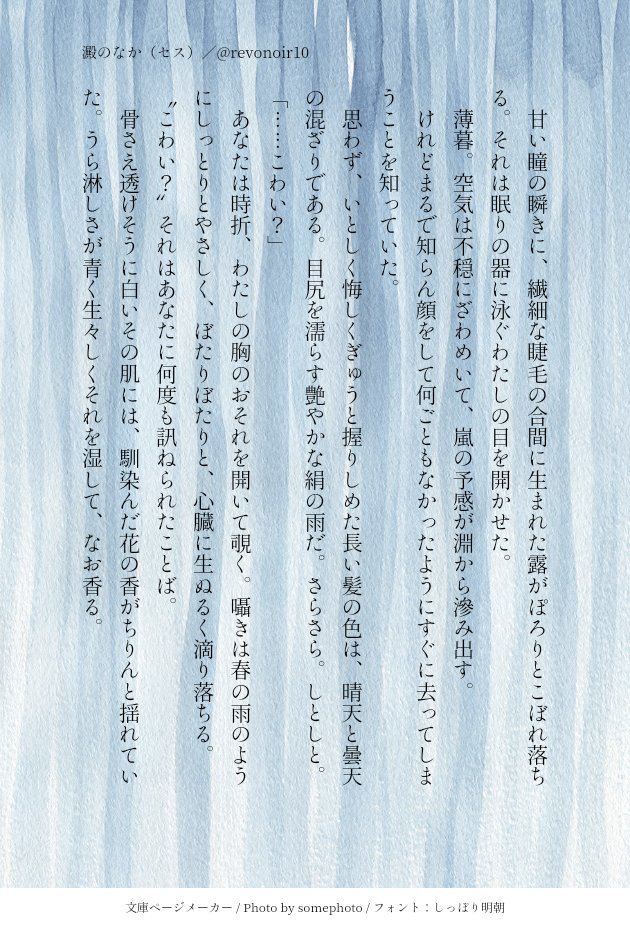 澱のなか（セス）／@revonoir10
　甘い瞳の瞬きに、繊細な睫毛の合間に生まれた露がぽろりとこぼれ落ち
る。それは眠りの器に泳ぐわたしの目を開かせた。
　薄暮。空気は不穏にざわめいて、嵐の予感が淵から滲み出す。
　けれどまるで知らん顔をして何ごともなかったようにすぐに去ってしま
うことを知っていた。
　思わず、いとしく悔しくぎゅうと握りしめた長い髪の色は、晴天と曇天
の混ざりである。目尻を濡らす艶やかな絹の雨だ。さらさら。しとしと。
「……こわい？」
　あなたは時折、わたしの胸のおそれを開いて覗く。囁きは春の雨のよう
にしっとりとやさしく、ぽたりぽたりと、心臓に生ぬるく滴り落ちる。
〝こわい？〟それはあなたに何度も訊ねられたことば。
　骨さえ透けそうに白いその肌には、馴染んだ花の香がちりんと揺れてい
た。うら淋しさが青く生々しくそれを湿して、なお香る。
文庫ページメーカー / Photo by somephoto / フォント：しっぽり明朝